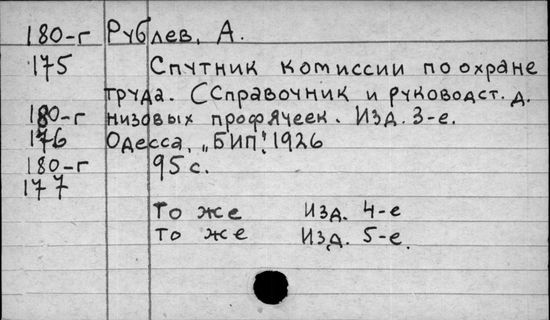 180-г Рублев, А.
175 Спутник комиссии по охране
труда. (Справочник и руководст. д.
180-г низовых профячеек. Изд. 3-е.
176 Одесса, „БИП“! 1926
180-г 95 с.
177
То же Изд. 4-е
То же Изд. 5-е.